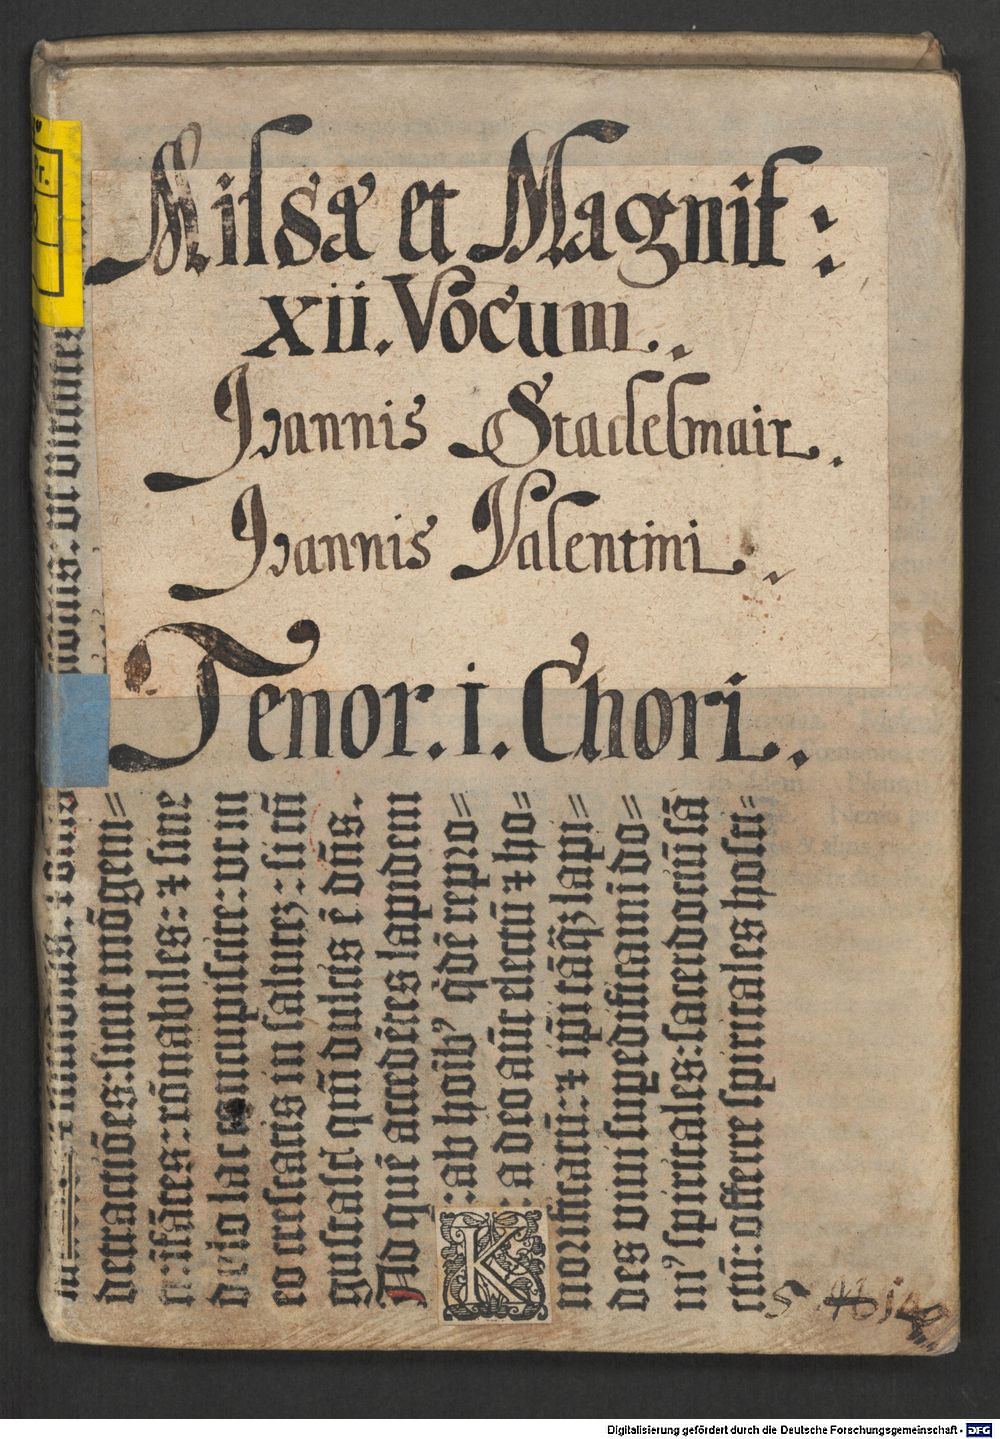 Missæ et Magnif:
xii. Vocum.
Ioannis Stadelmair.
Ioannis Valentini.
Tenor. i. Chori.
detractiões: sicut mō gen-
ti: ifātes: rōnabiles: ⁊ sine
dolo lac concupiscite: vt in
eo crescatis in salutez: si tn̄
gustastis qm̄ dulcis ē dn̄s.
Ad quē accedētes lapidem
: ab hoībꝰ qdē repro-
: a deo aūt electū ⁊ ho-
norificatū: ⁊ ip̄i tāqz lapi-
des viui supedificamī do-
mꝰ spiritales: sacerdociū sā
ctū: offerre spiritales hosti-
K
Digitalisierung gefördert durch die Deutsche Forschungsgemeinschaft - DFG